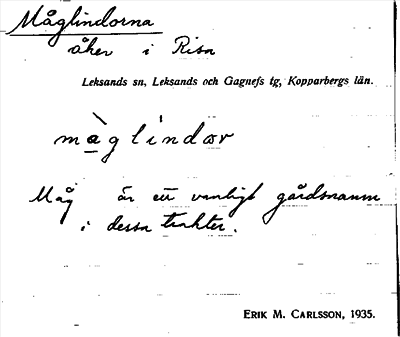 Måglindorna
åker i Risa
Leksands sn, Leksands och Gagnefs tg, Kopparbergs län.
màglindar
Måg är ett vanligt gårdsnamn
i dessa trakter.
ERIK M. CARLSSON, 1935.